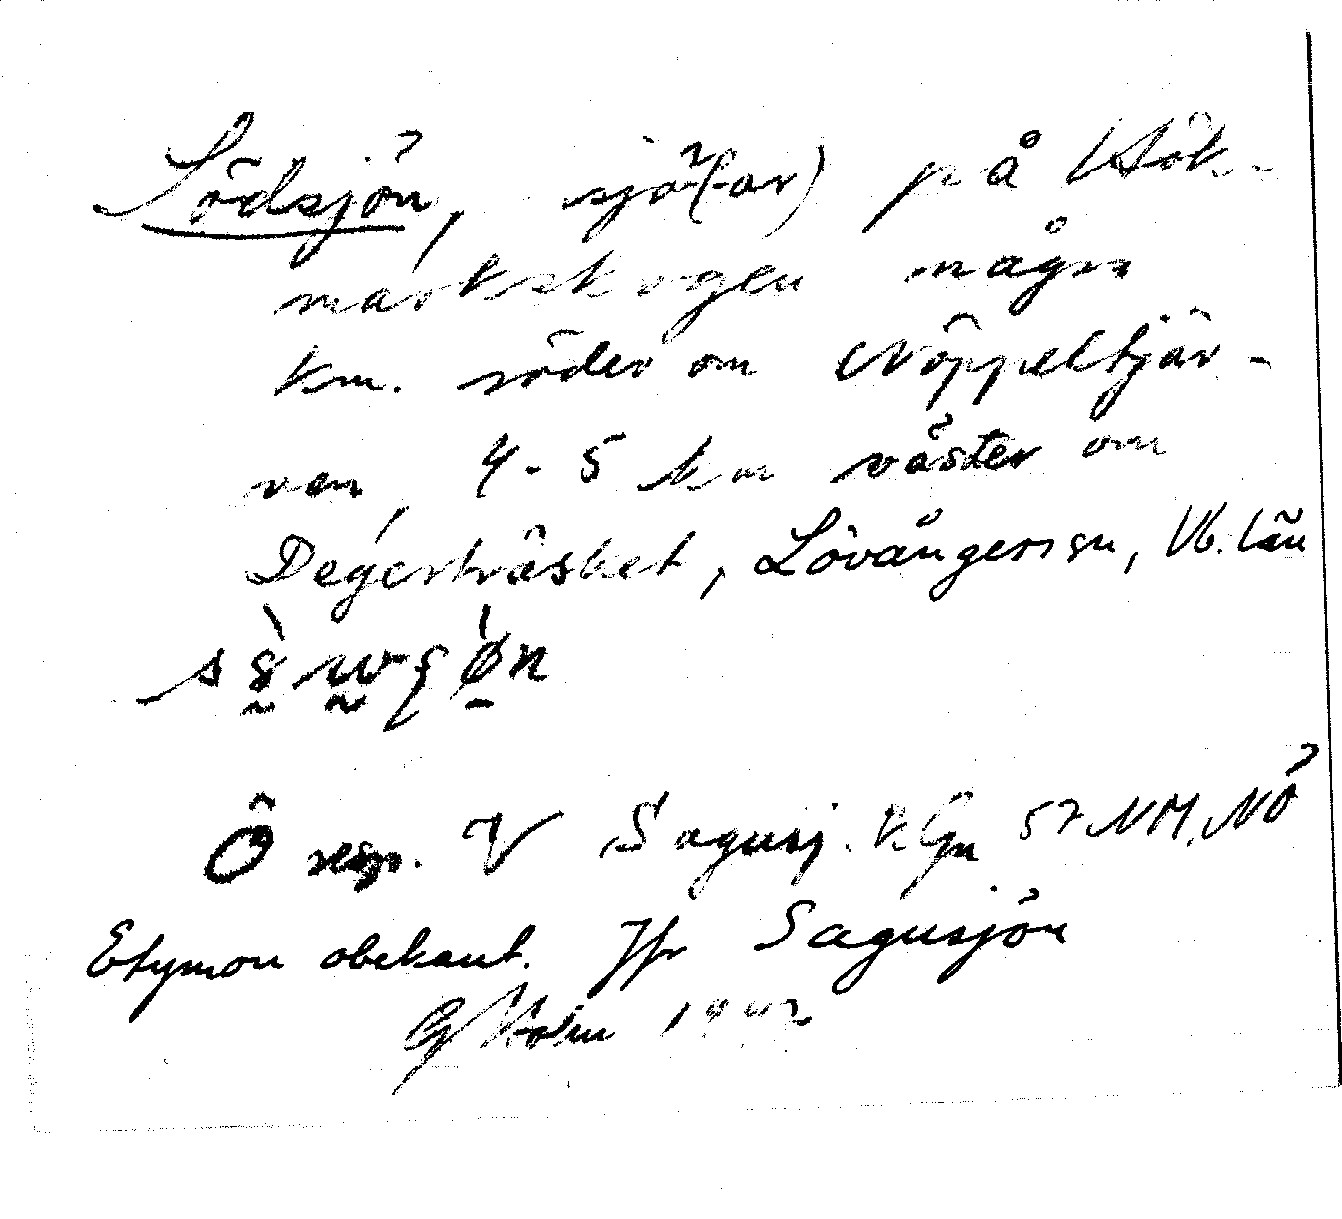 Södsjön, sjö(-ar) på Hök-
markskogen några
km. söder om Nöppeltjär-
nen, 4-5 km väster om
Degerträsket, Lövångers sn, Vb. län
Ö resp. V Sagusj. 57 NM, NÖ
Etymon obekant. Jfr Sagusjön
G Holm 1942